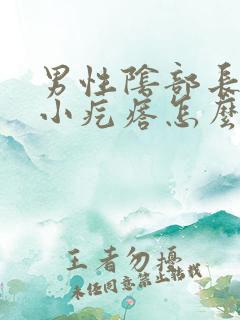 男性陰部長
小疙瘩怎麼
王者勿擾
未经同意禁止转载